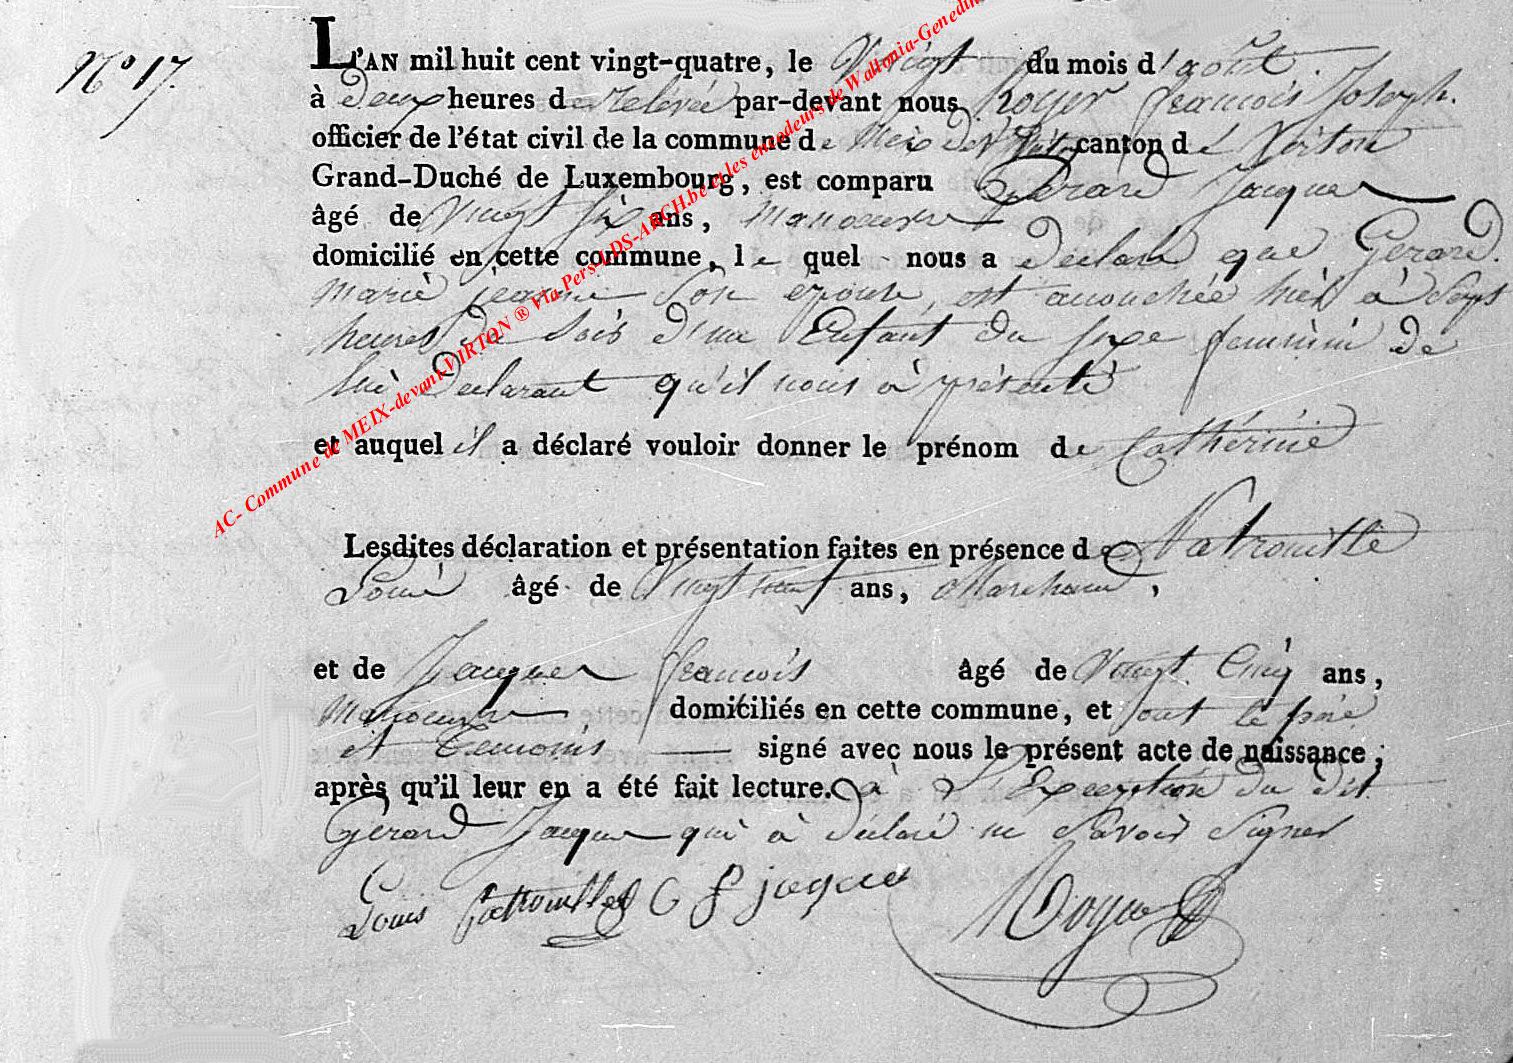 N° 17.
L'AN mil huit cent vingt-quatre, le Vingt du mois d'août.
à Deux heures de relévée par-devant nous Roger francois Joseph.
officier de l'état civil de la commune de Meix devt Virton canton de Virton
Grand-Duché de Luxembourg, est comparu Gerard Jacque
âgé de Vingt six ans, manoeuvre
domicilié en cette commune, le quel nous a declaré que Gerard.
marie jeanne son epouse, est accouchée hier à Sept
heures de soir d'une Enfant du sexe feminin de
lui Declarant qu'il nous à présenté
et auquel il a déclaré vouloir donner le prénom de Cathérine
Lesdites déclaration et présentation faites en présence de Patrouille
Louis âgé de Vingt neuf ans, Marchand,
et de Jacques francois âgé de Vingt Cinq ans,
Manoeuvre domiciliés en cette commune, et ont le père
et temoins signé avec nous le présent acte de naissance;
après qu'il leur en a été fait lecture. à L'Exception du dit
Gérard Jacque qui à déclaré ne Savoir Signer
Louis Patrouille f jaque Roger
AC- Commune de MEIX-devant-VIRTON ® Via Pers-LDS-ARCH.be et les encodeurs de Wallonia-Genedin